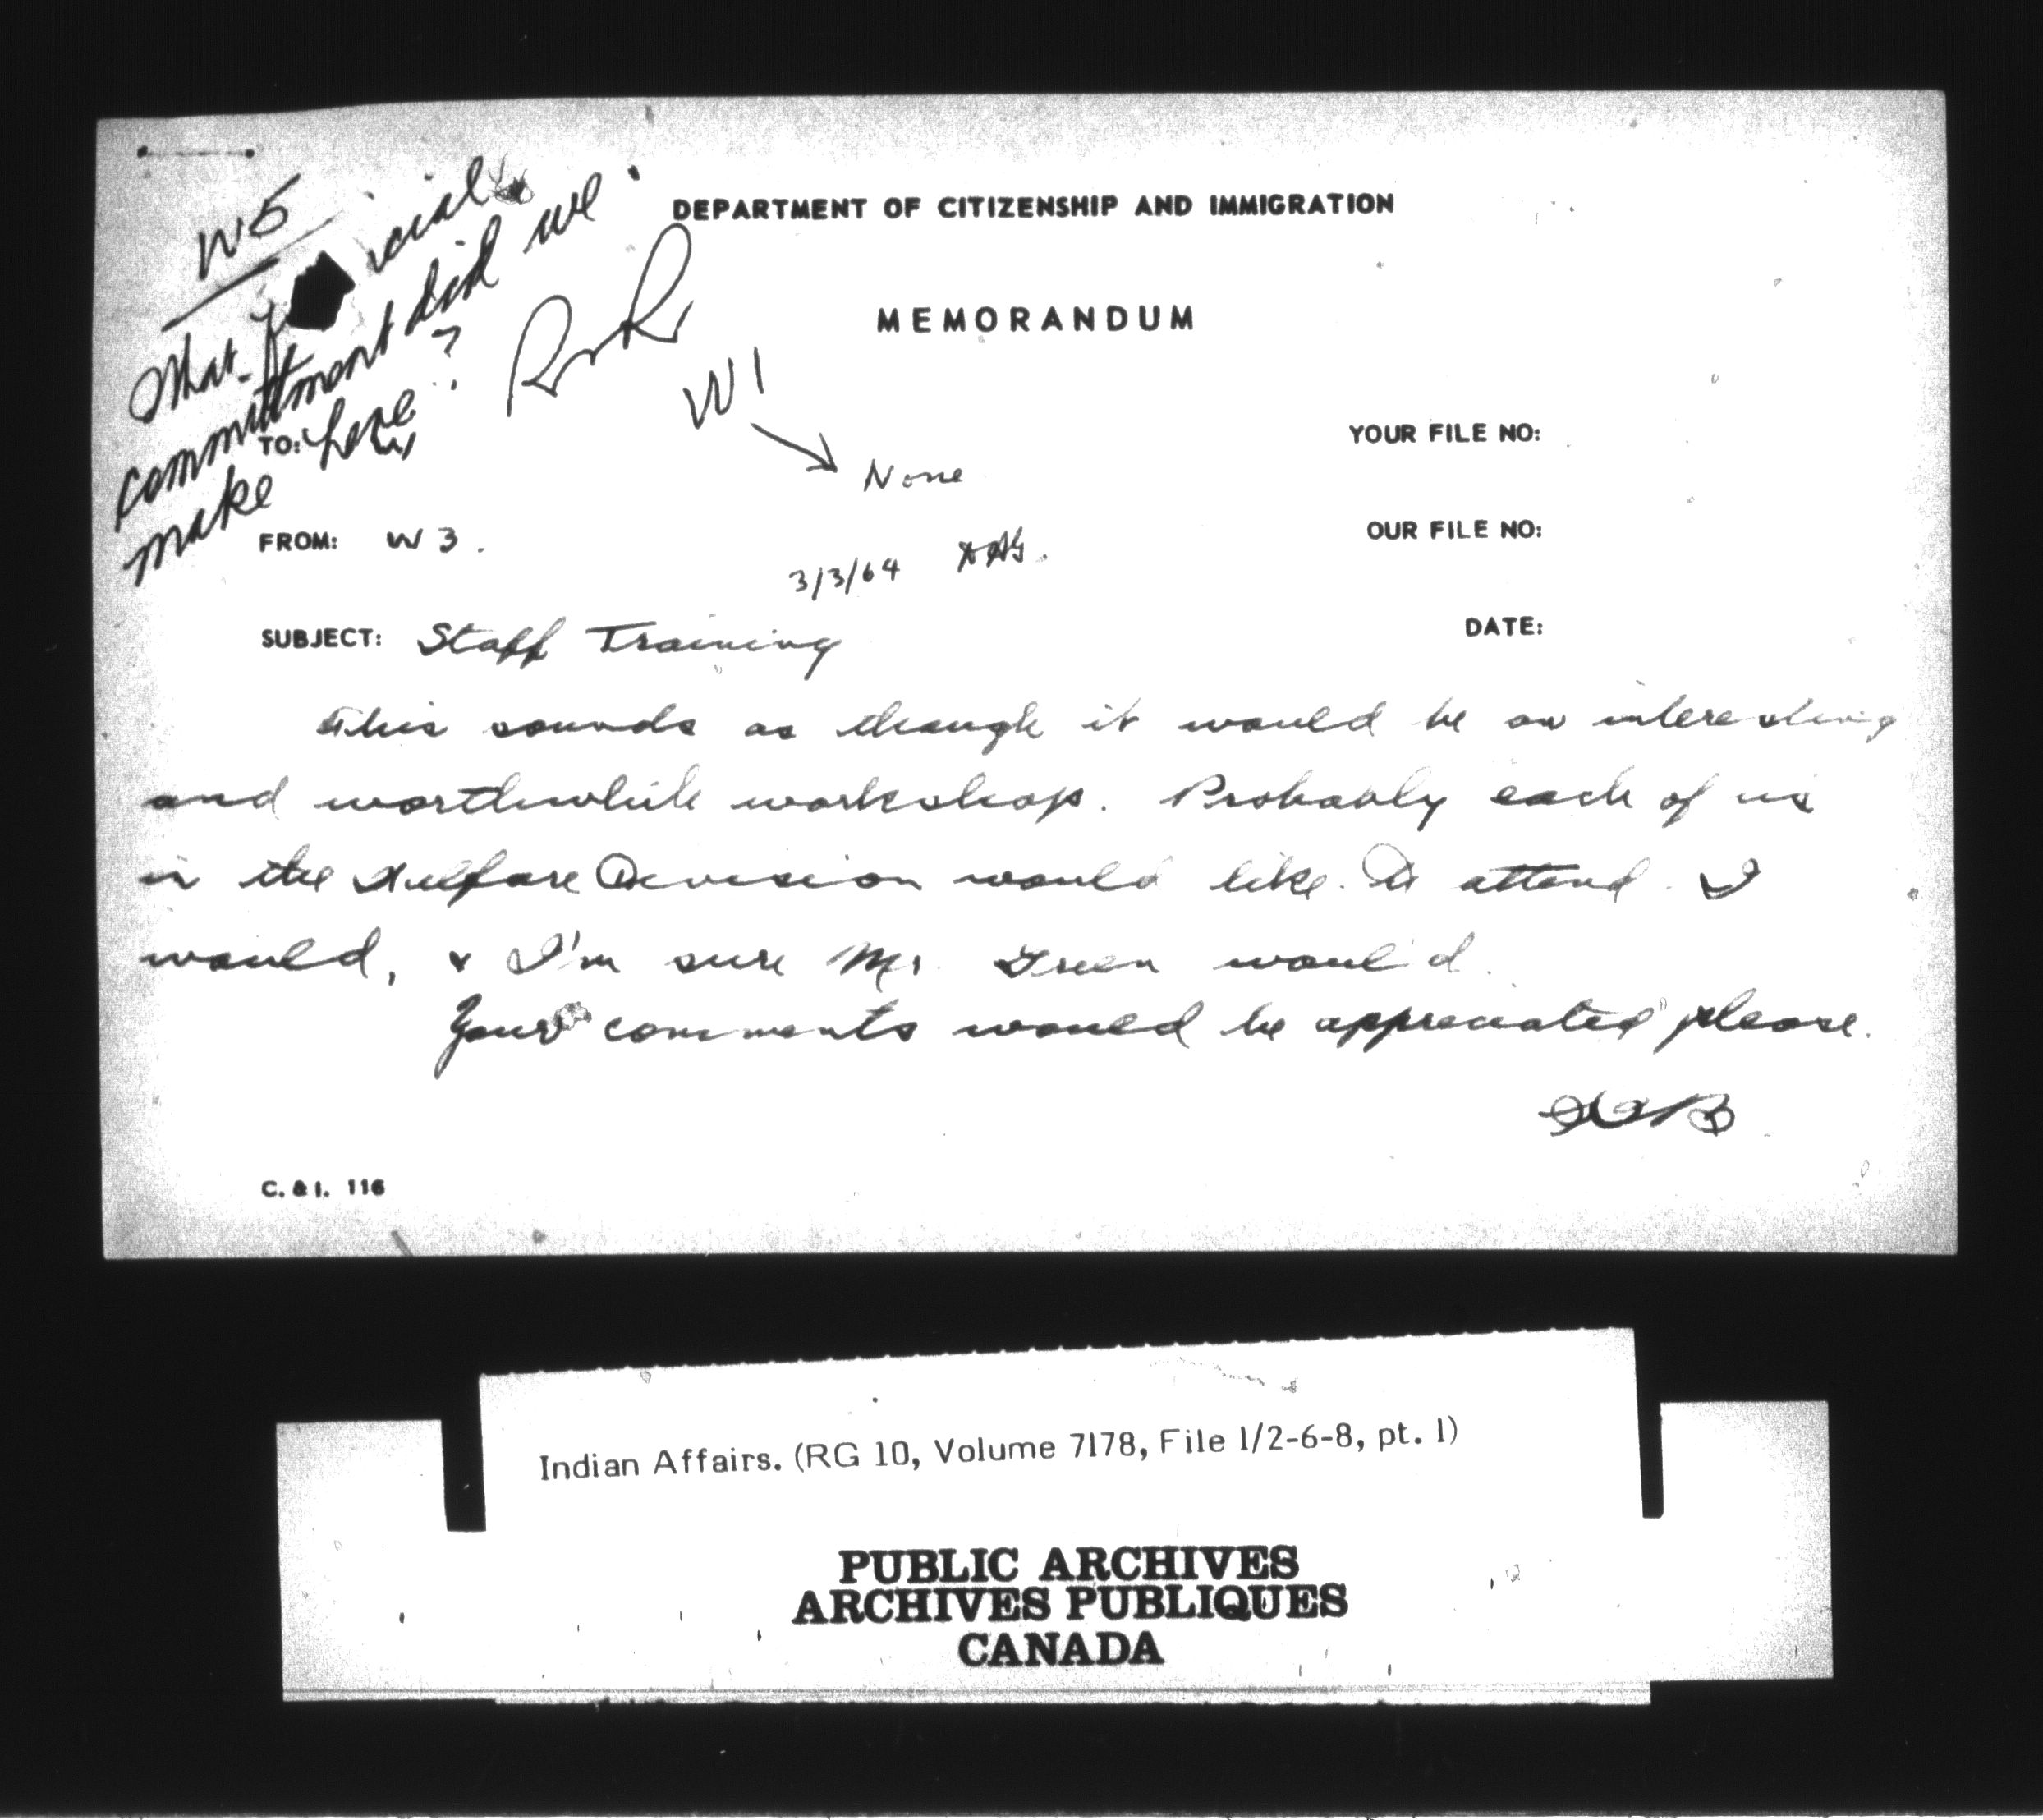 W5
What f cial
committment did we
make here?
DEPARTMENT OF CITIZENSHIP AND IMMIGRATION
MEMORANDUM
W1
None
TO:
YOUR FILE NO:
FROM: W3.
OUR FILE NO:
3/3/64
SUBJECT: Staff Training
DATE:
This sounds as though it would be an interesting
and worthwhile workshop. Probably each of us
in the Welfare Division would like to attend. I
would, & I'm sure Mr. Green would.
Your comments would be appreciated please.
C. & I. 116
Indian Affairs. (RG 10, Volume 7178, File 1/2-6-8, pt. 1)
PUBLIC ARCHIVES
ARCHIVES PUBLIQUES
CANADA